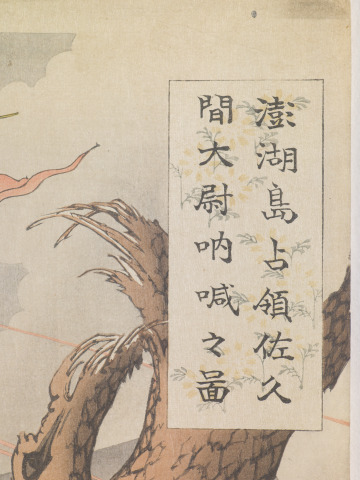 澎湖島占領佐久
間大尉吶喊之啚